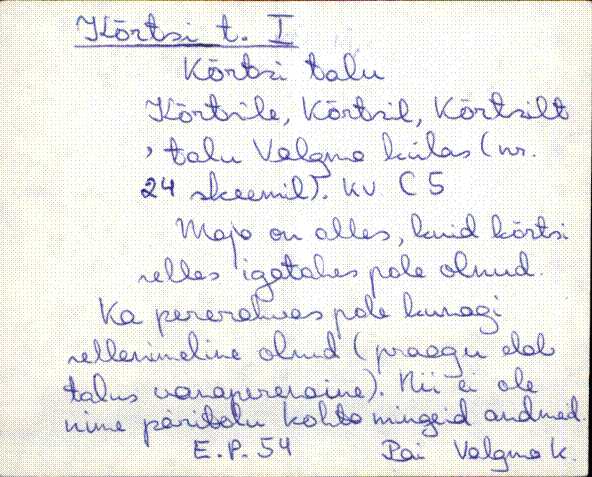 Kõrtsi t. I
Kõrtsi talu
Kõrtsile, Kõrtsil, Kõrtsilt
, talu Valgma külas (nr.
24 skeemil). KV C 5
Maja on alles, kuid kõrtsi
selles igatahes pole olnud.
Ka pererahvas pole kunagi
sellenimeline olnud (praegu elab
talus vanaperenaine). Nii ei ole
nime päritolu kohta mingeid andmed.
E.P. 54 Pai Valgma k.